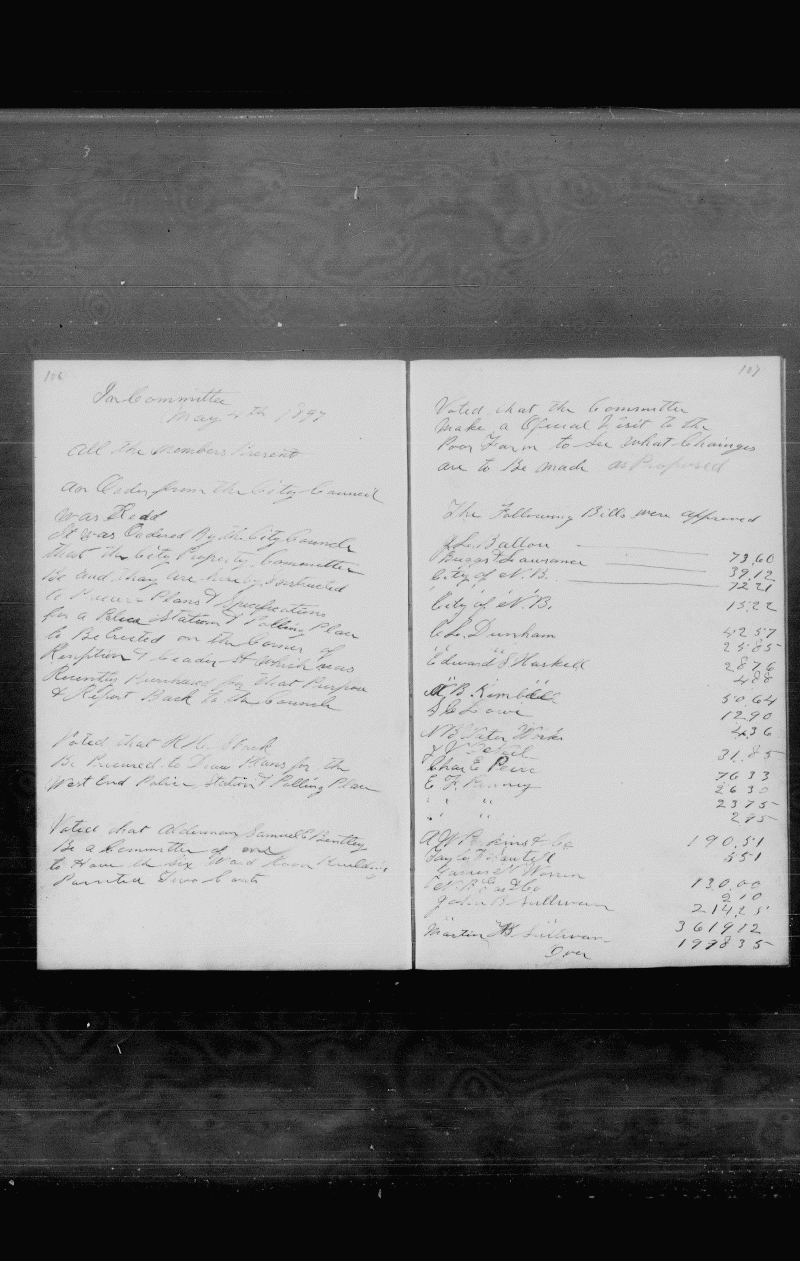 106
In Committee
May 4th 1897
All the Members Present
An Order from the City Council
was Redd
It was Ordered By the City Council
that the City Property Committee
Be and they are hereby instructed
to Procure Plans & Specifications
for a Police Station & Polling Place
to Be Erected on the Corner of
Kempton & Cedar St which was
Recently Purchased for that Purpose
& Report Back to the Council
Voted that R H Slack
Be Procured to Draw Plans for the
West End Police Station & Polling Place
Voted that Alderman Samuel E Bentley
Be a Committee of one
to Have the Six Ward Room Building
Painted Two Coats
107
Voted that the Committee
Make a Official Visit to the
Poor Farm to see what Chainges
are to Be made as Proposed
The Following Bills were approved
Ballou 73.60
Briggs & Lawrance 39.12
City of N.B. 72 21
City of N.B. 15 22
C.L. Dunham 42 57
" " 25 85
Edward S Haskell 28 76
4 88
B Kimball 50.64
Lowe 12 90
N B Water Works 4.36
31.85
Chas E Peirce 76 33
E F. Penney 26 30
" " 23 75
" " 2 95
A W P kins & Co 190.51
5 51
James N Warren
N B Gas Co 130.00
2 10
John B Sullivan 214 25
" 3619 12
Martin B Sullivan 1998 35
Over